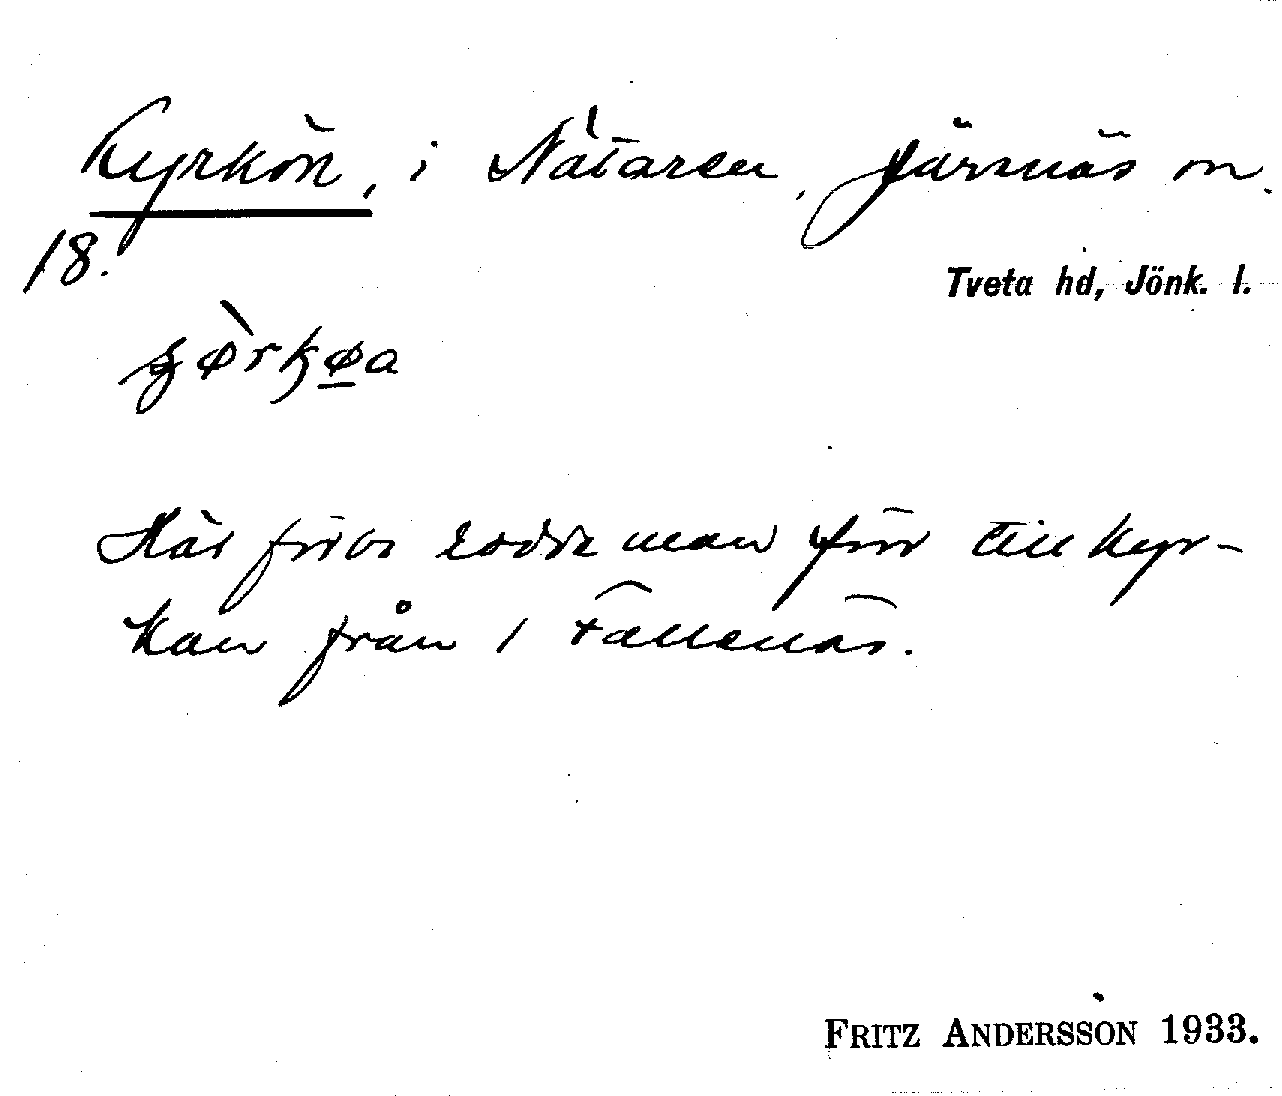 Kyrkön, i Nätaren, Järsnäs sn.
18.
Tveta hd, Jönk. l.
Här förbi rodde man förr till kyr-
kan från 1 Fallenäs.
FRITZ ANDERSSON 1933.